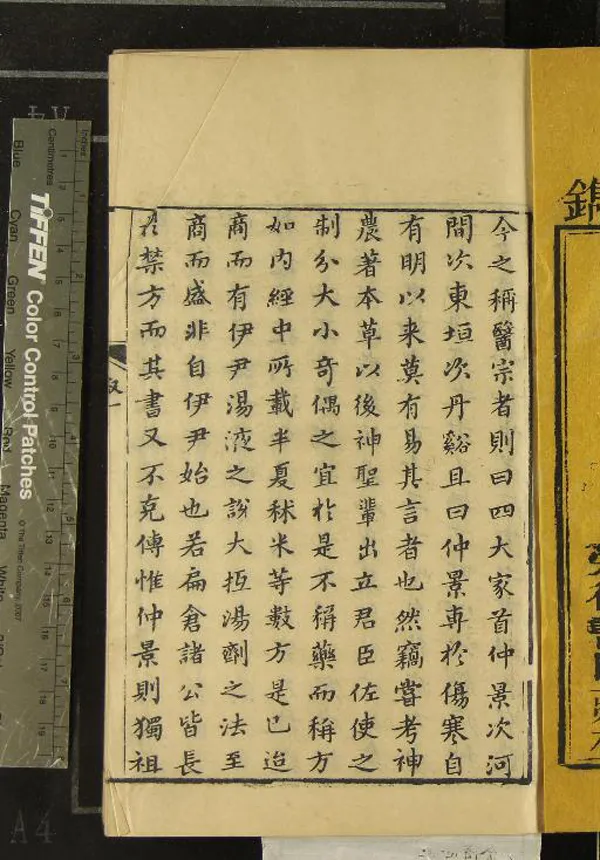 今之稱醫宗者則曰四大家首仲景次河
間次東垣次丹谿且曰仲景專於傷寒自
有明以来莫有易其言者也然竊嘗考神
農著本草以後神聖輩出立君臣佐使之
制分大小奇偶之宜於是不稱藥而稱方
如内經中所載半夏秫米等數方是已迨
商而有伊尹湯液之說大抵湯劑之法至
商而盛非自伊尹始也若扁倉諸公皆長
於禁方而其書又不克傳惟仲景則獨祖
叙一
鐫
TIFFEN Color Control Patches
© The Tiffen Company, 2007
Centimetres
Inches
Blue
Cyan
Green
Yellow
Red
Magenta
White
A4